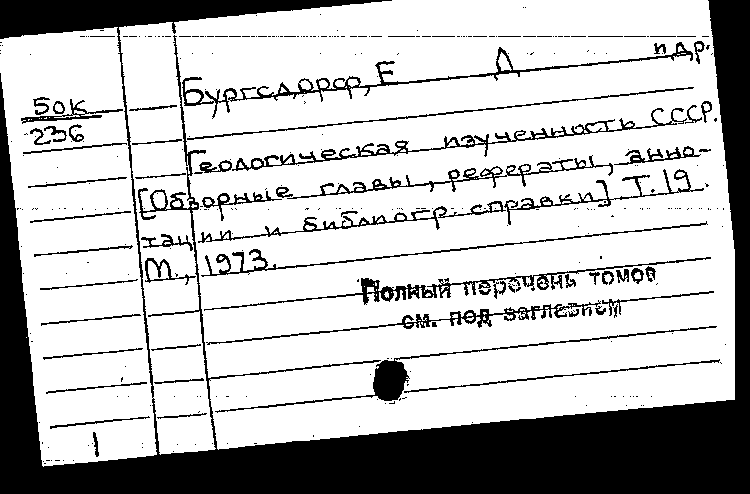 Бургсдорф, Е Д и др.
50к
236
Геологическая изученность СССР.
[Обзорные главы, рефераты, анно-
тации и библиогр. справки] Т. 19.
М., 1973.
Полный перечень томов
см. под заглавием
1